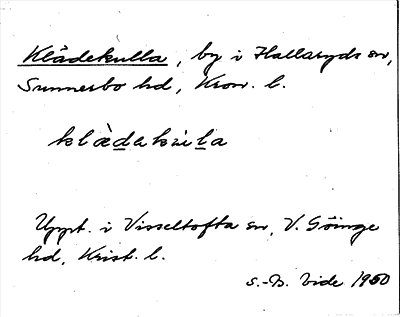 Klådekulla, by i Hallaryds sn,
Sunnerbo hd, Kron. l.
Uppt. i Visseltofta sn, V. Göinge
hd, Krist. l.
S.-B. Vide 1950